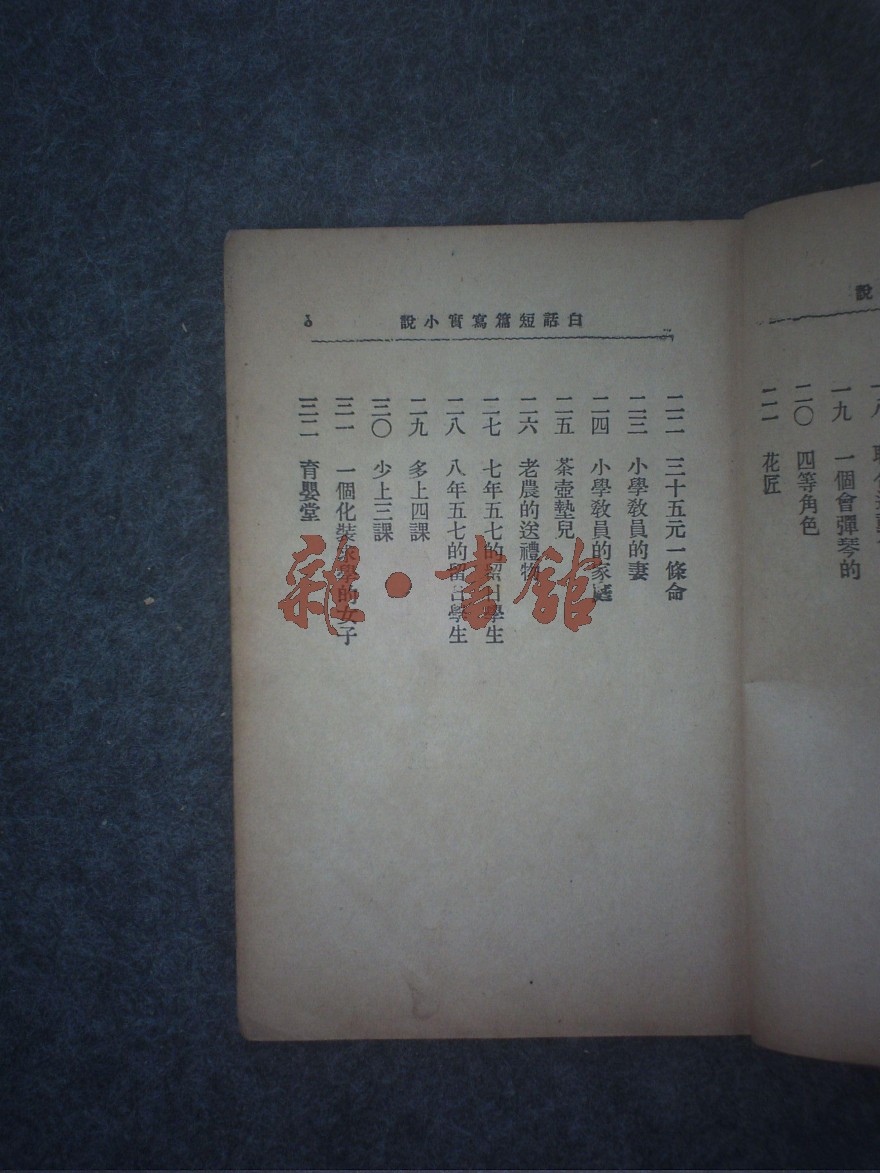 說
一九 一個會彈琴的
二〇 四等角色
二一 花匠
白話短篇寫實小說
二二 三十五元一條命
二三 小學教員的妻
二四 小學教員的家庭
二五 茶壺墊兒
二六 老農的送禮物
二七 七年五七的留日學生
二八 八年五七的留日學生
二九 多上四課
三〇 少上三課
三一 一個化裝求學的女子
三二 育嬰堂
雜·書館